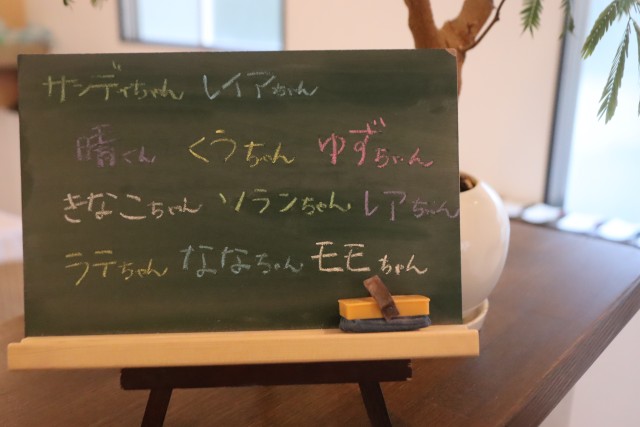 サンディちゃん レイアちゃん
晴くん くうちゃん ゆずちゃん
きなこちゃん ソランちゃん レアちゃん
ラテちゃん ななちゃん モモちゃん